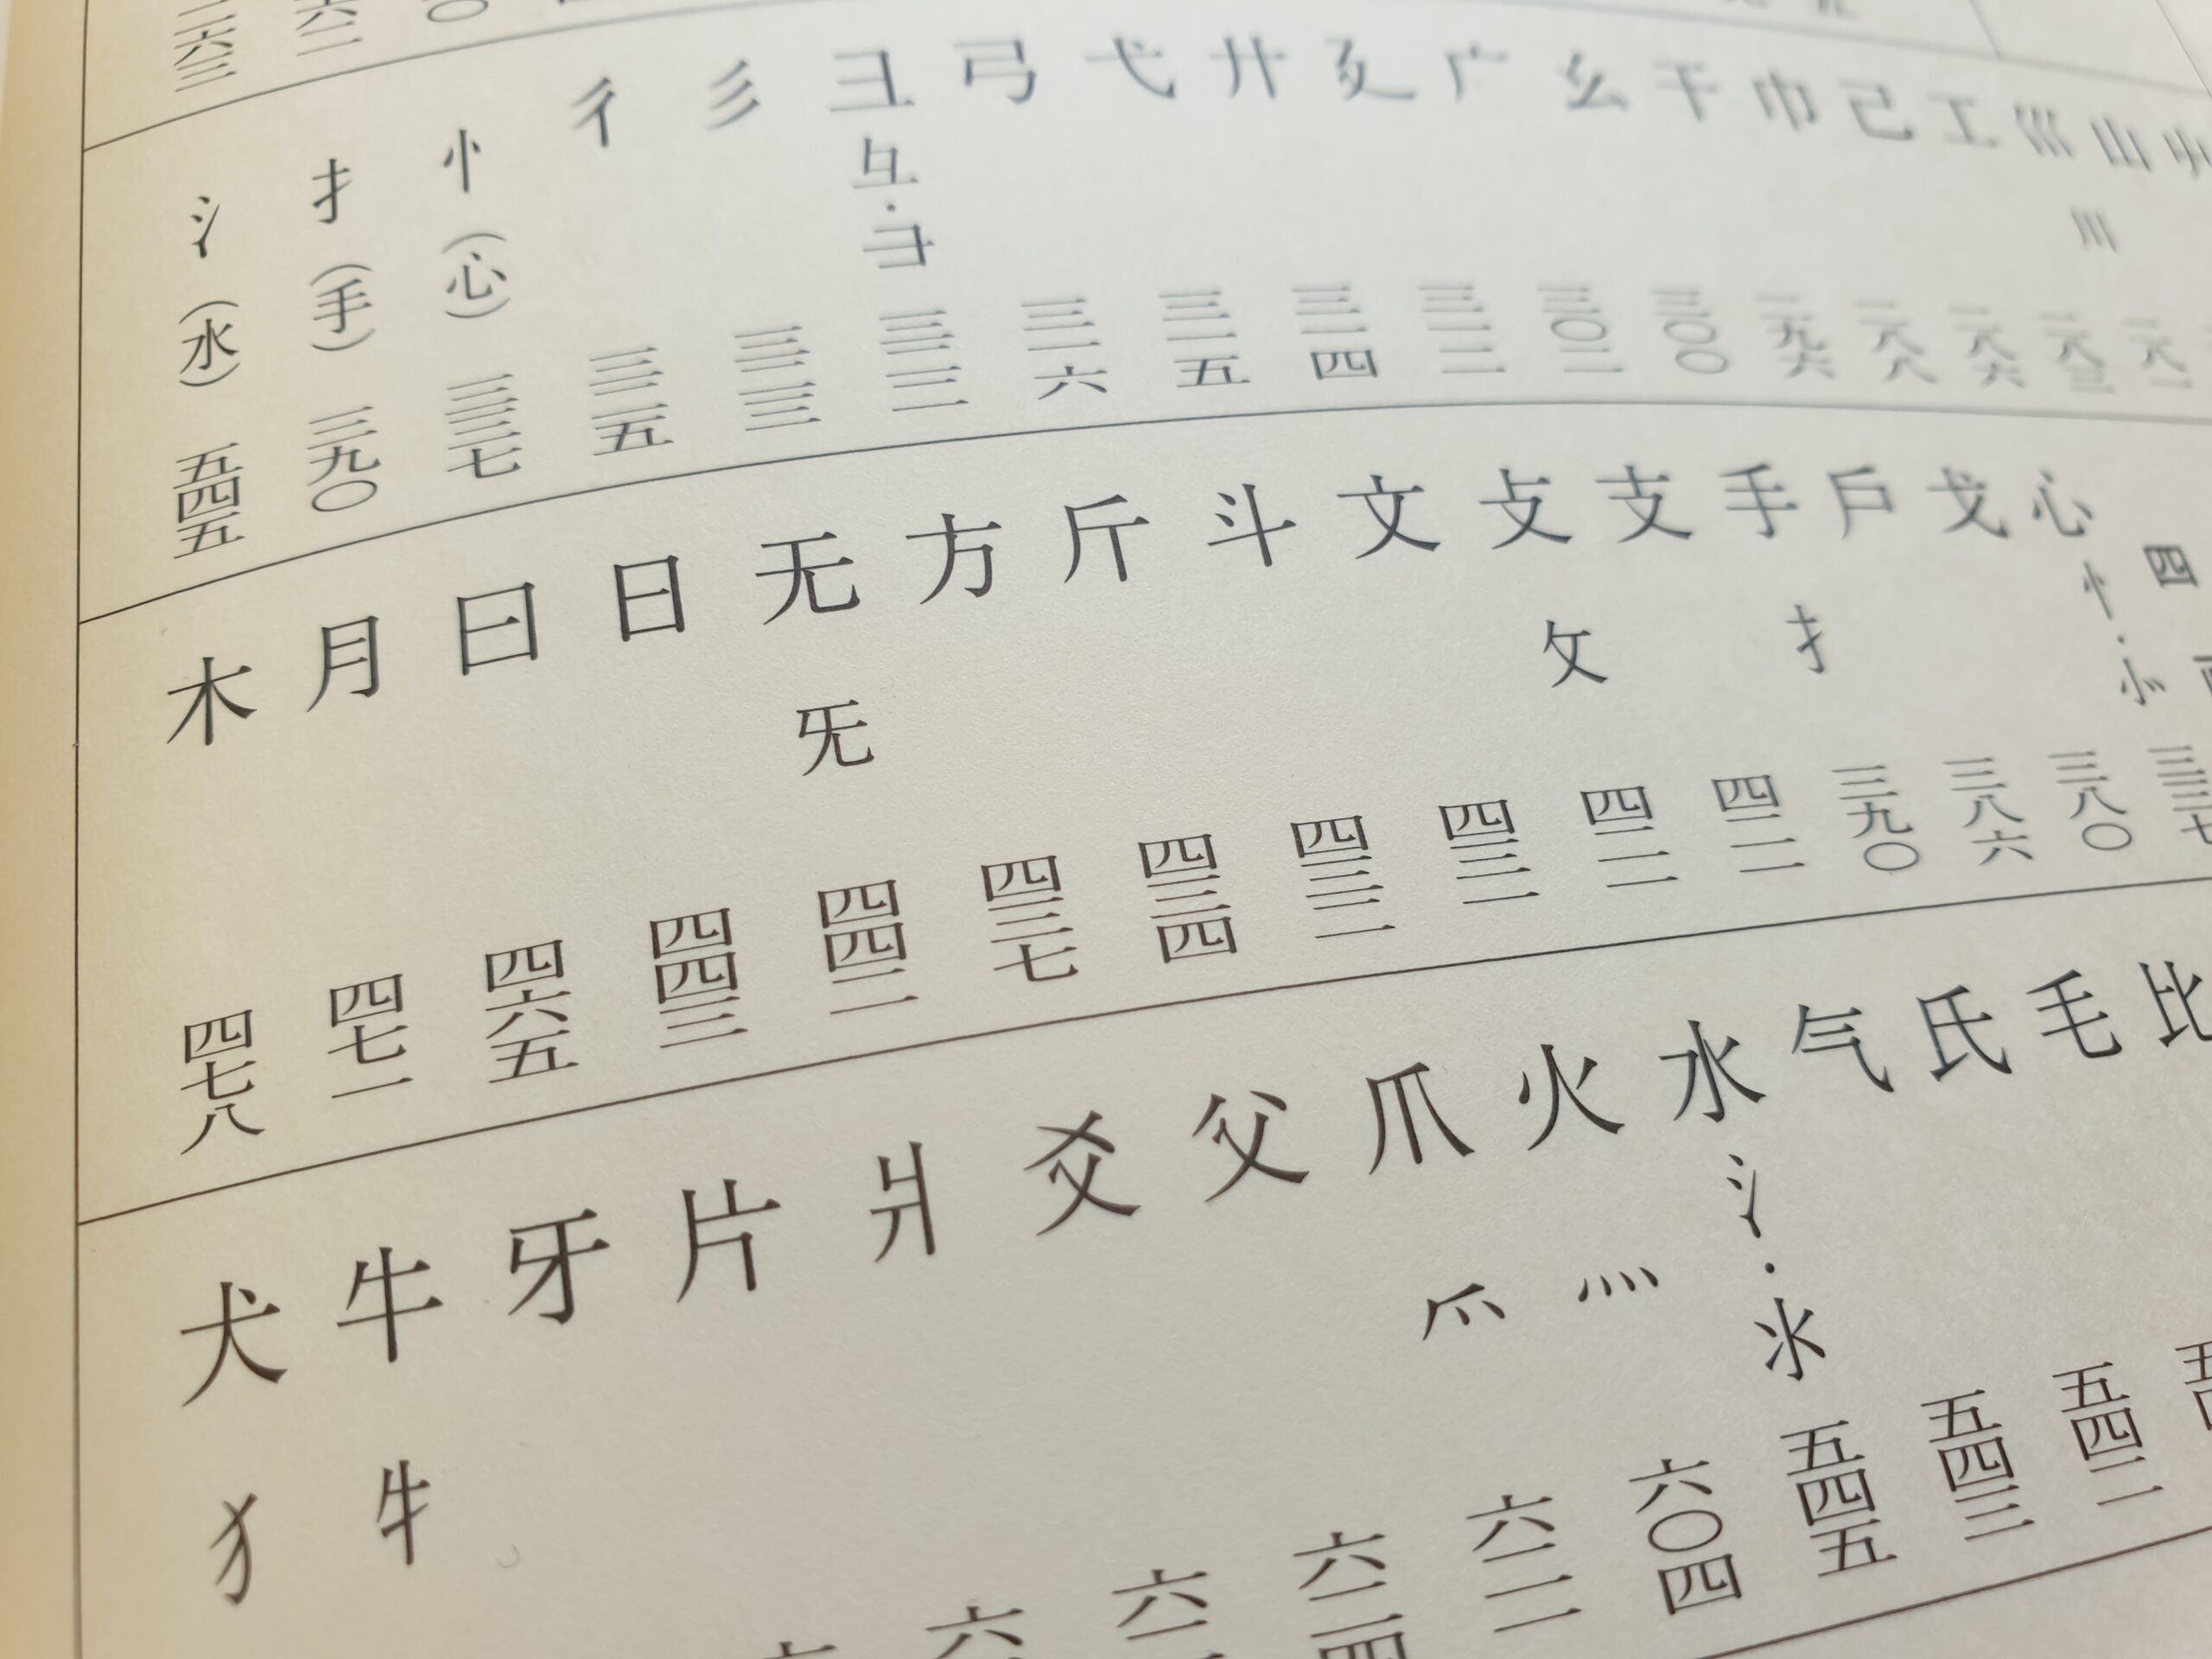 山
巛 川
工
己 二八六
巾 二八八
干 二九六
幺 三〇〇
广 三〇二
廴 三一二
廾 三一四
弋 三一五
弓 三一六
彐 彑・⺕ 三二二
彡 三二三
彳 三二五
忄(心) 三三七
扌(手) 三九〇
氵(水) 五四五
四
心 忄・㣺 三三七
戈 三八〇
戶 三八六
手 扌 三九〇
支 四二一
攴 攵 四二一
文 四三一
斗 四三二
斤 四三四
方 四三七
无 旡 四四二
日 四四三
曰 四六五
月 四七一
木 四七八
比
毛
氏 五四二
气 五四三
水 氵・氺 五四五
火 灬 六〇四
爪 爫
父
爻
爿
片
牙
牛 牜
犬 犭